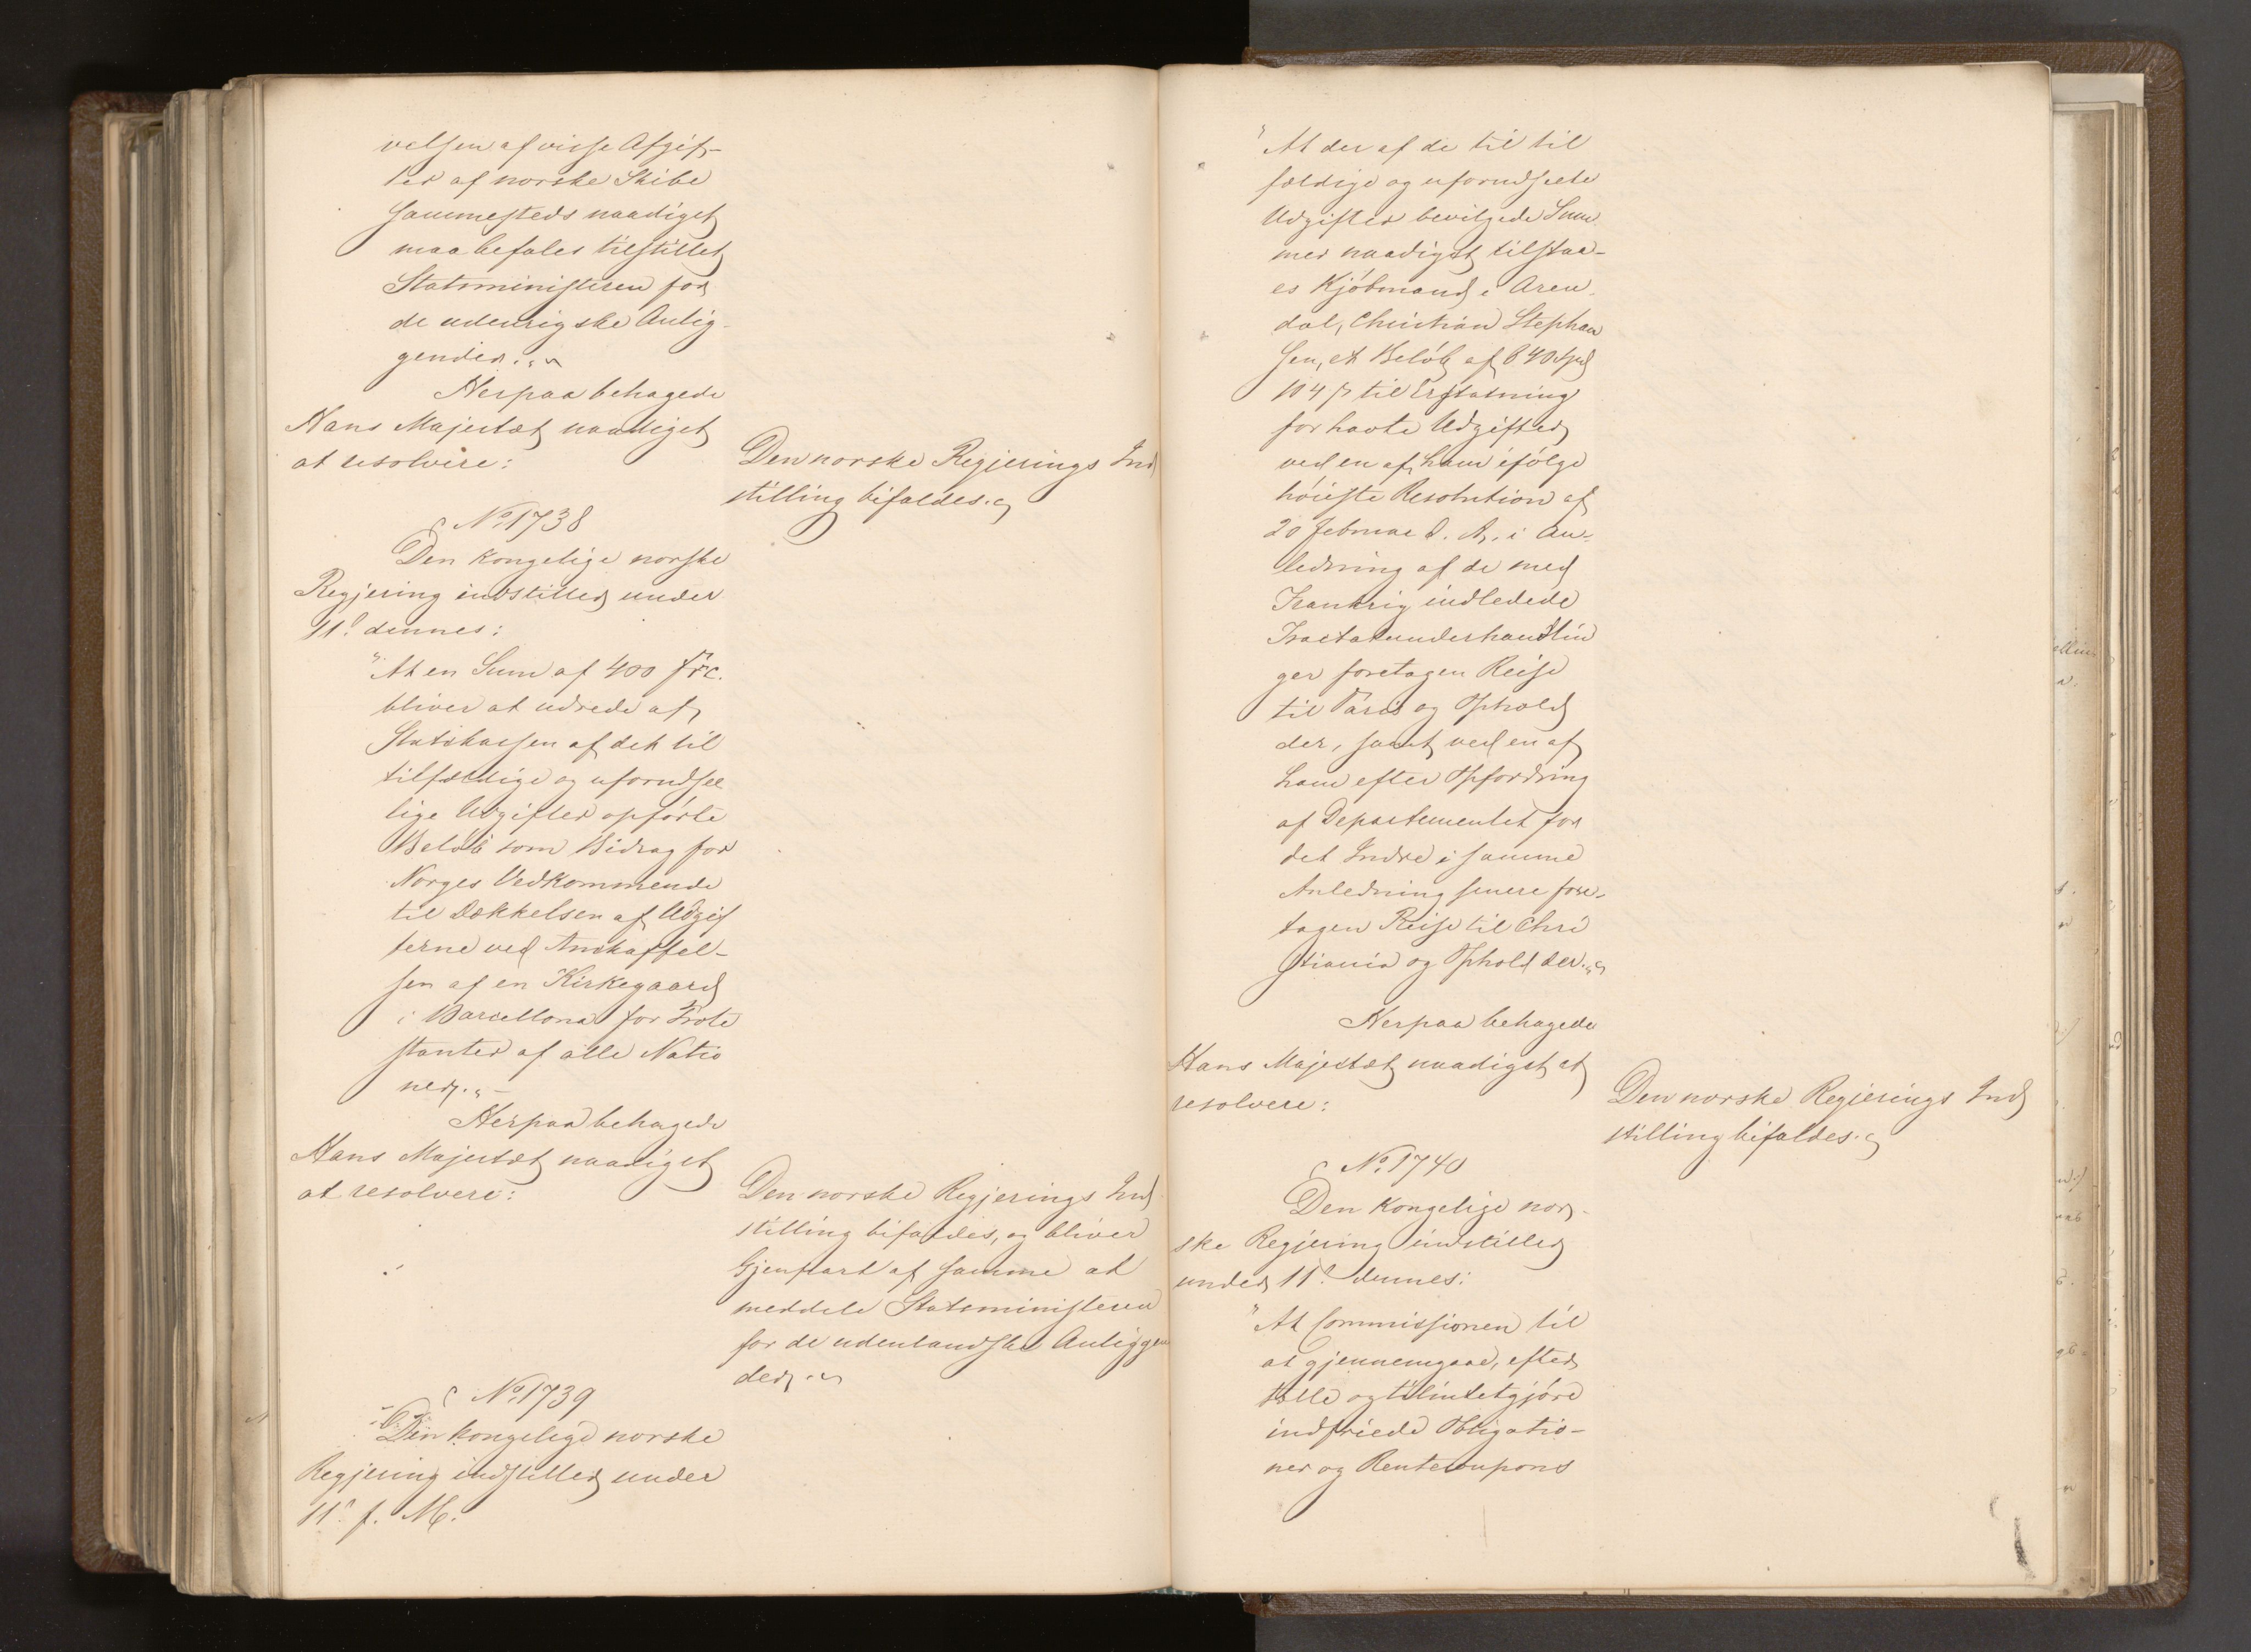 velsen af visse Afgif-
ter af norske Skibe
sammesteds naadigst
maa befales tilstillet
Statsministeren for
de udenrigske Anlig-
gender."
Herpaa behagede
Hans Majestæt naadigst
at resolvere:
Den norske Regjerings Ind
stilling bifaldes.
No 1738
Den kongelige norske
Regjering indstiller under
11te dennes:
"At en Sum af 400 frc.
bliver at udrede af
Statskassen af det til
tilfældige og uforudsee
lige Udgifter opførte
Beløb som Bidrag for
Norges Vedkommende
til Dækkelsen af Udgif
terne ved Anskaffel-
sen af en Kirkegaard
i Barcellona for Prote
stanter af alle Natio
ner."
Herpaa behagede
Hans Majestæt naadigst
at resolvere:
Den norske Regjerings Ind
stilling bifaldes, og bliver
Gjenpart af samme at
meddele Statsministeren
for de udenlandske Anliggen
der.
No 1739
Den kongelige norske
Regjering indstiller under
11te f. M.
"At der af de til til
fældige og uforudseete
Udgifter bevilgede Sum
mer naadigst tilstaa-
es Kjøbmand i Aren-
dal, Christian Stephan
sen, et Beløb af 640 Spd
104 ß til Erstatning
for havte Udgifter
ved en af ham ifølge
høieste Resolution af
20 Februar d. A. i An-
ledning af de med
Frankrig indledede
Tractatunderhandlin
ger foretagen Reise
til Paris og Ophold
der, samt ved en af
ham efter Opfordring
af Departementet for
det Indre i samme
Anledning senere fore-
tagen Reise til Chri
stiania og Ophold der."
Herpaa behagede
Hans Majestæt naadigst at
resolvere:
Den norske Regjerings Ind
stilling bifaldes.
No 1740
Den kongelige nor-
ske Regjering indstiller
under 11te dennes:
"At Commissionen til
at gjennemgaae, efter
tælle og tilintetgjøre
indfriede Obligatio-
ner og Rentecoupons